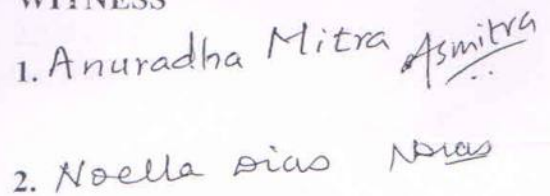 WITNESS
1. Anuradha Mitra Asmitra
2. Noella Dias NDias